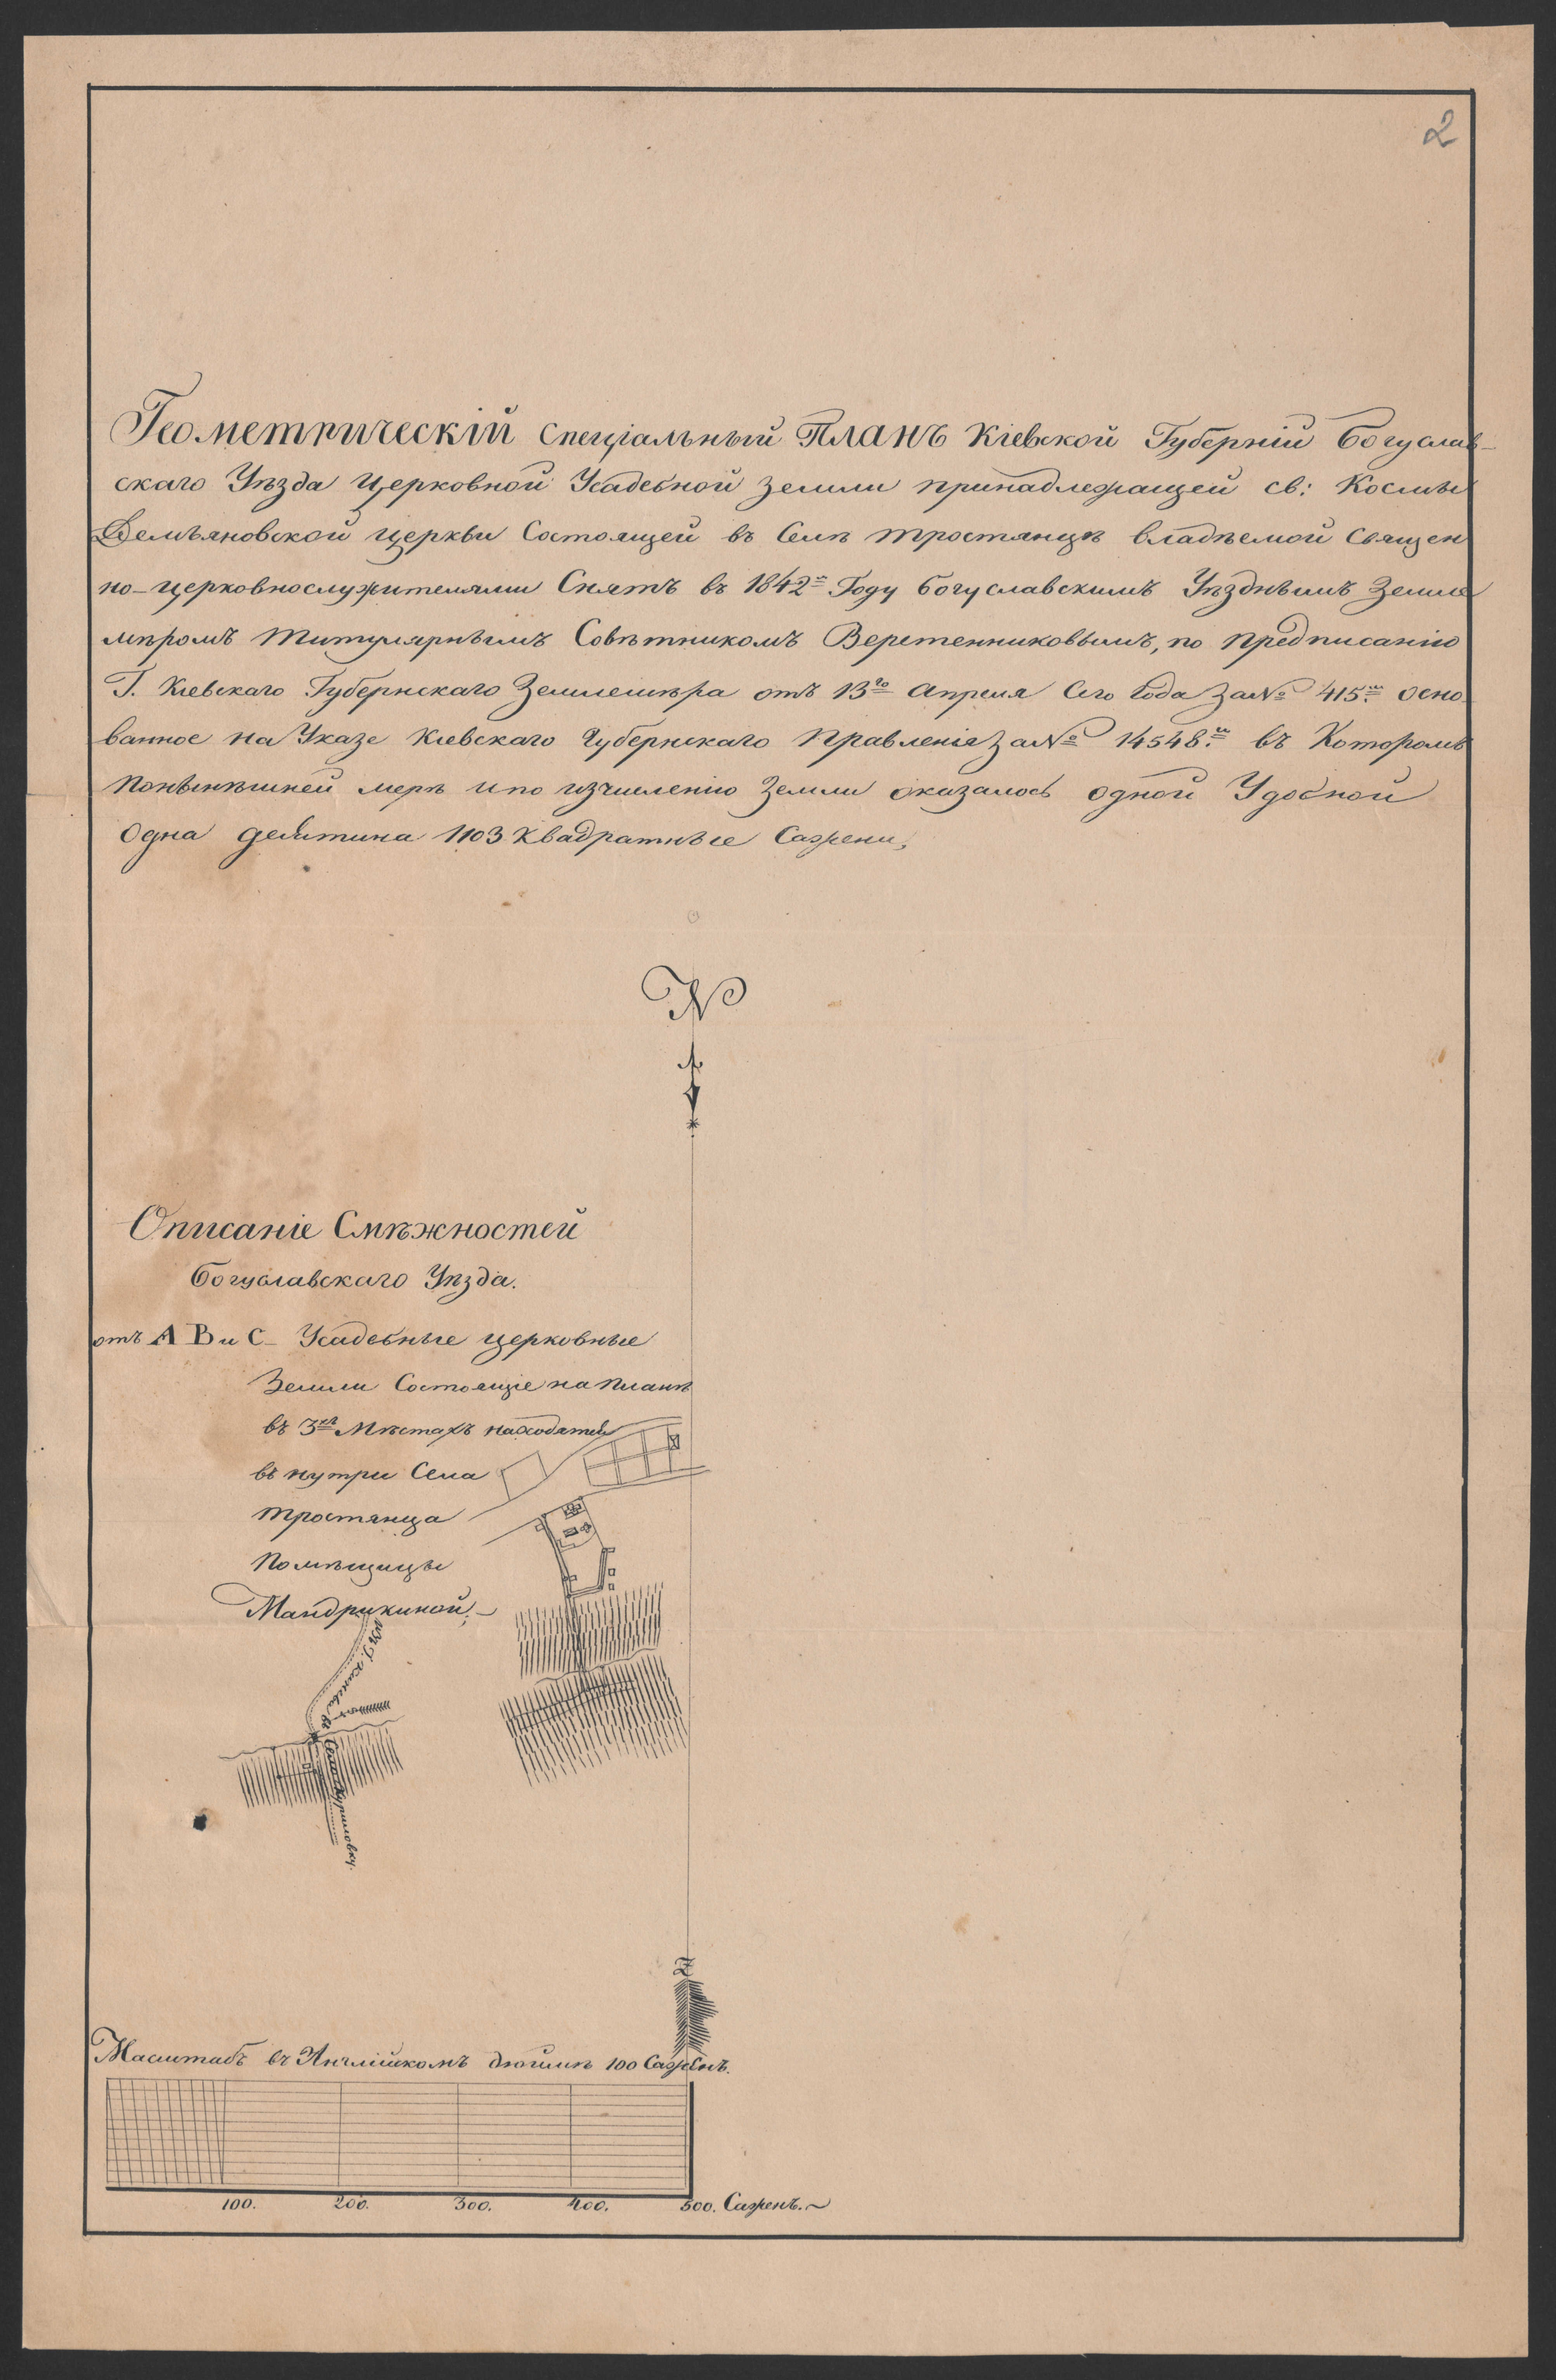 2
Геометрическій спеціальный Планъ Кіевской Губерніи Богуслав-
скаго Уѣзда Церковной Усадебной земли принадлежащей св: Космы
Демьяновской церкви Состоящей въ Селѣ Тростянцѣ владѣемой Священ
но-церковнослужителями Снятъ въ 1842м Году Богуславскимъ Уѣзднымъ Земле
мѣромъ Титулярнымъ Совѣтникомъ Веретенниковымъ, по предписанію
Г. Кіевскаго Губернскаго Землемѣра отъ 13го Апреля Сего Года за № 415м осно
ванное на Указе Кіевскаго Губернскаго Правленія за № 14548.м въ Которомъ
Понынѣшней мерѣ и по изчисленію Земли оказалось одной Удобной
Одна десятина 1103 квадратные Сажени,
N
Описаніе Смѣжностей
Богуславскаго Уѣзда.
отъ A B и C Усадебные церковные
Земли Состоящіе на планѣ
въ 3хъ Мѣстахъ находятся
въ нутри Села
Тростянца
Помѣщицы
Мандрикиной,
изъ Г. Канева въ
Куриловку.
Масштабъ въ Англійскомъ дюймѣ 100 Саженъ.
100. 200. 300. 400. 500. Саженъ.